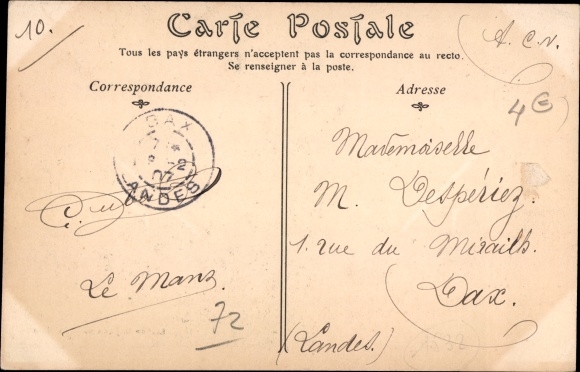 10.
Carte Postale
A. C. N.
Tous les pays étrangers n'acceptent pas la correspondance au recto.
Se renseigner à la poste.
Correspondance
Adresse
4€
DAX
LANDES
Mademoiselle
M. Despériez.
1. rue du Mirailh.
Dax.
(Landes.)
Le Mans.
72